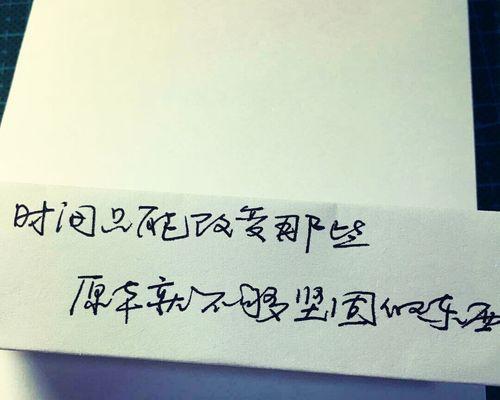 时间只能改变那些
原本就不够坚固的东西